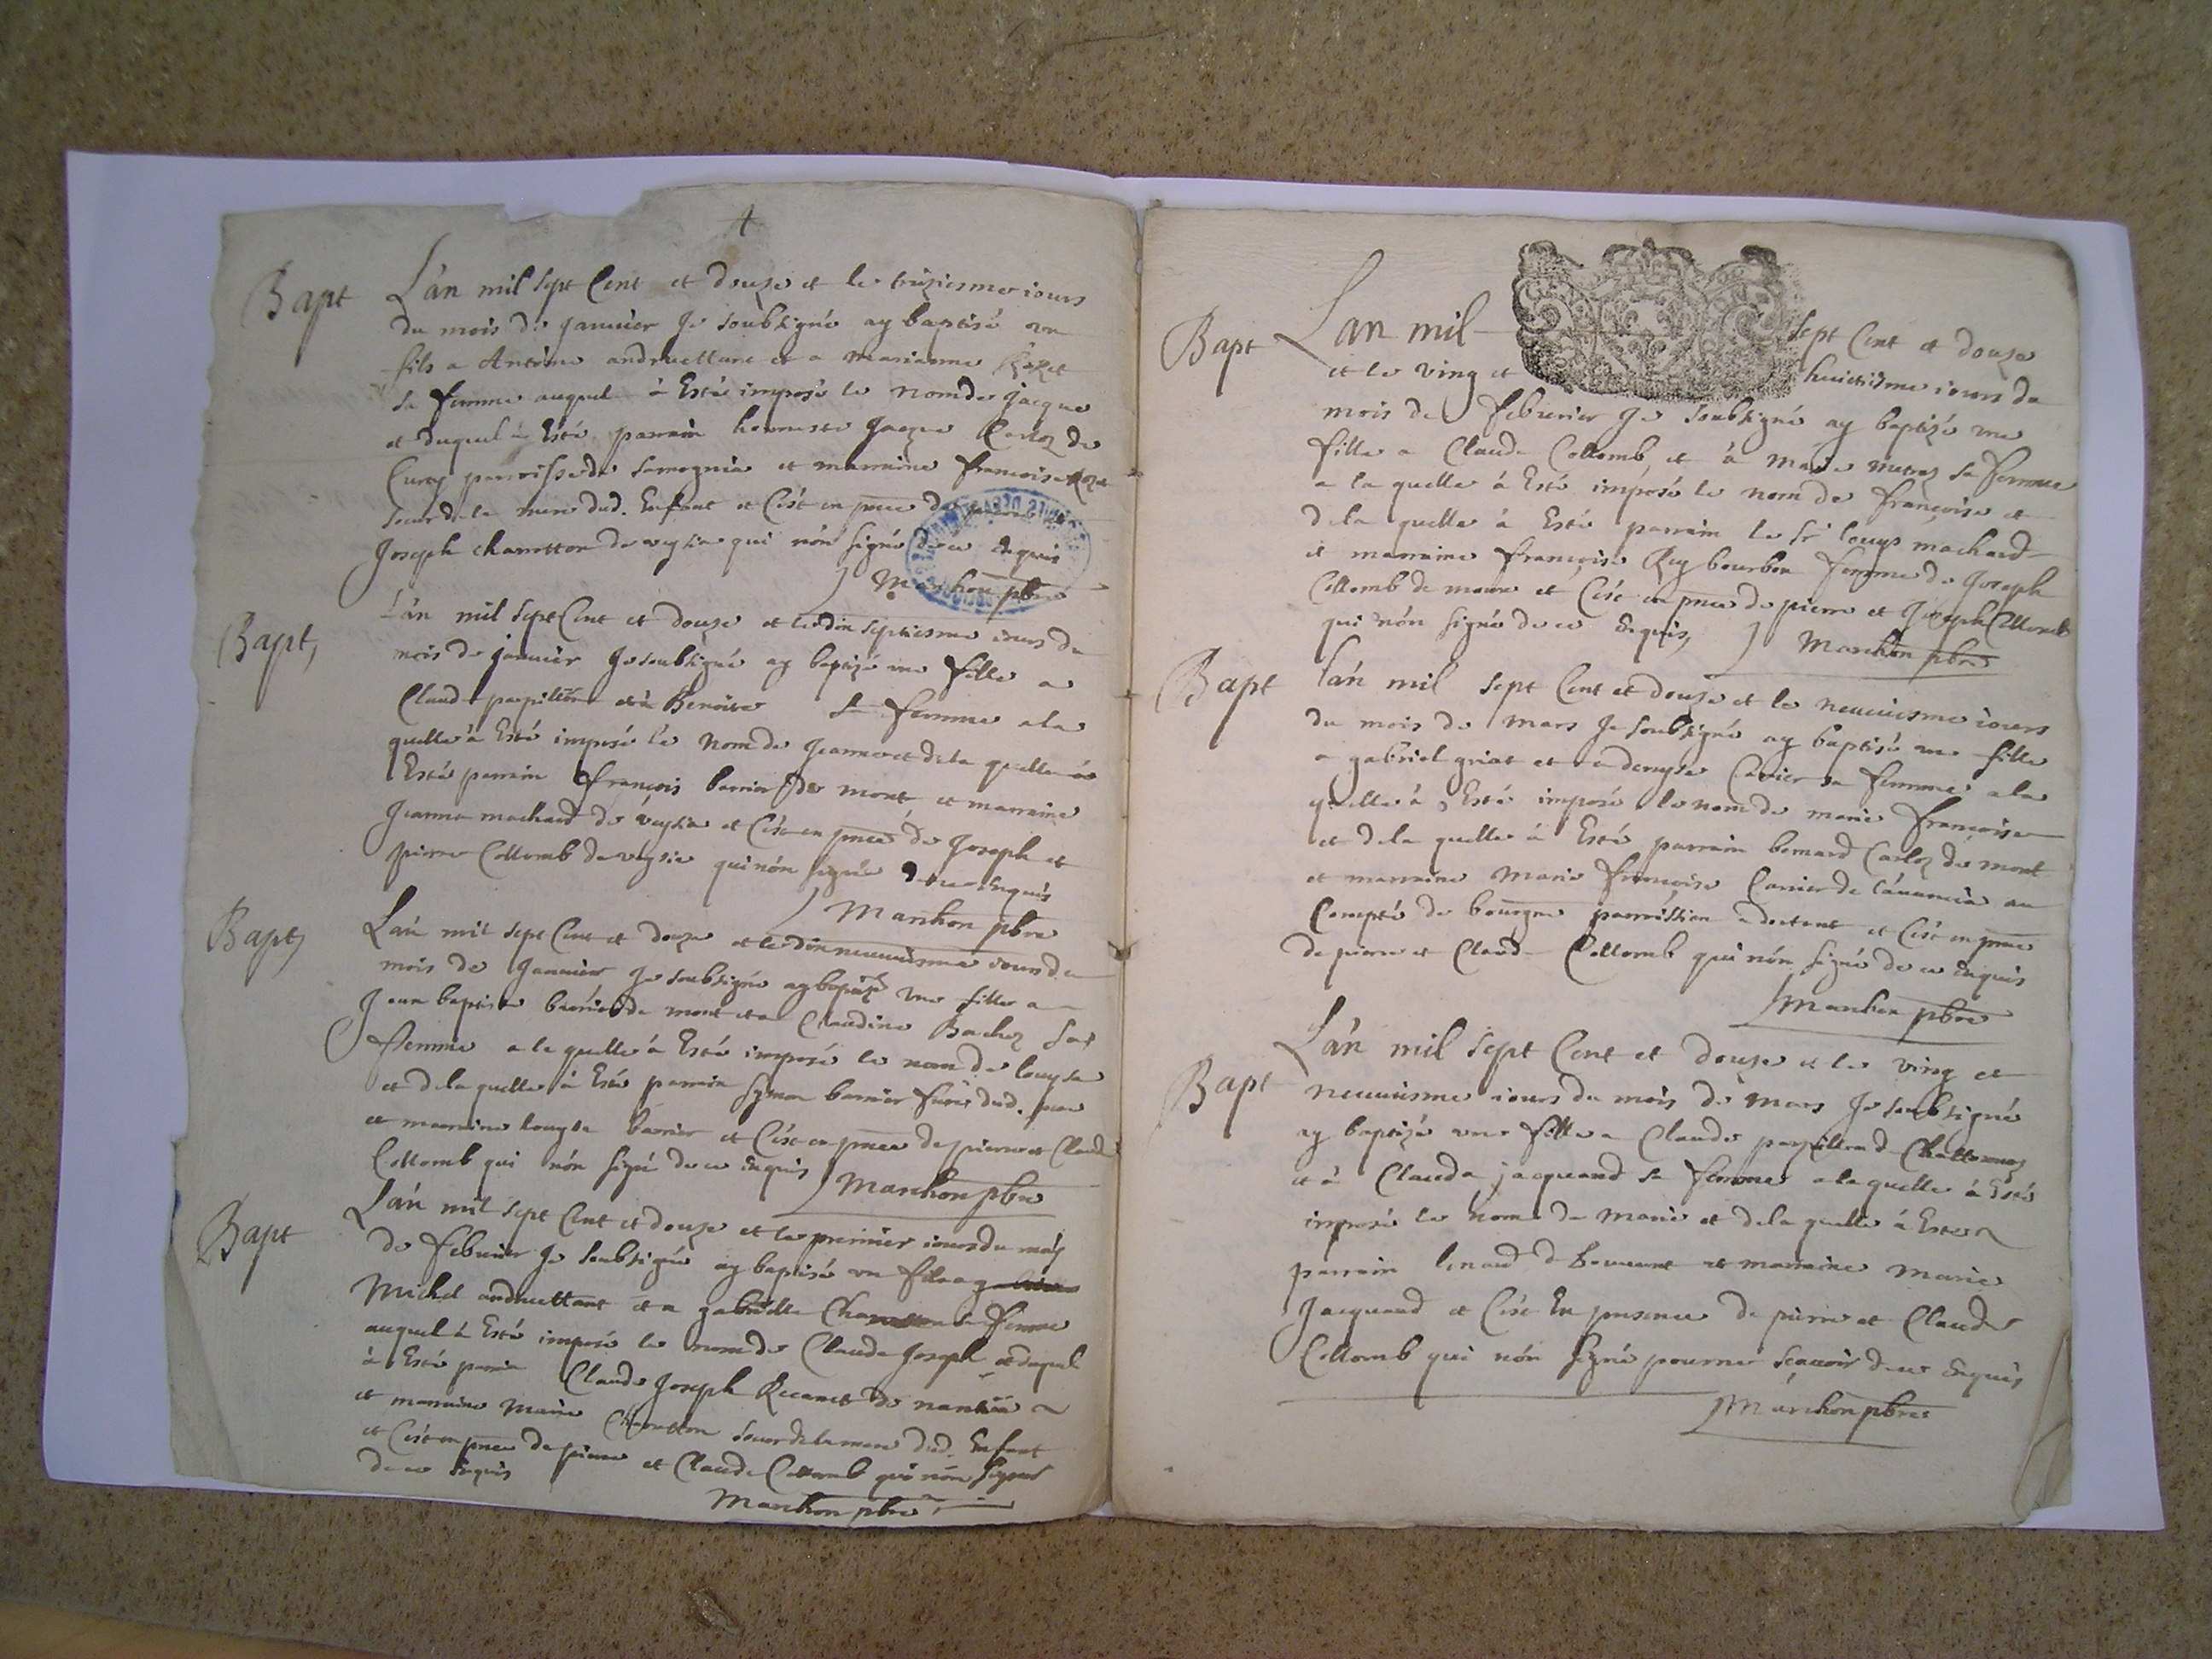 Bapt L'an mil sept Cent et douze et le treiziesme iours
du mois de januier Je soubsigné ay baptisé vn
fils a Antoine andruettant et a marianne Rozet
sa femme auquel à Esté imposé le nom de jacque
et duquel à Esté parrain honneste Jacque Carloz de
Curty parroisse de Samognia et marraine francoise Rozet
soeur de la mere dud. Enfant et C'est en pnce de
Joseph charretton de veysia qui nón signé de ce Enquis
Marchon pbre
Bapt, L'an mil sept Cent et douze et le dix septiesme iours du
mois de januier Je soubsigné ay baptizé vne fille a
Claude papillon et à Benoite sa femme a la
quelle à Esté imposé le nom de Jeanne et de la quelle a
Esté parrain françois barrier de mont et marraine
Jeanne machard de veysia et C'est en pnce de Joseph et
pierre Collomb de veysia qui nón signé de ce Enquis
Marchon pbre
Bapt, L'an mil sept Cent et douze et le dix neuuiesme iours du
mois de Januier Je soubsigné ay baptizé vne fille a
Jean baptiste barrier de mont et a Claudine Bachoz sa
femme a la quelle à Esté imposé le nom de louyse
et de la quelle à Esté parrain Symon barrier frere dud. pere
et marraine louyse barrier et C'est en pnce de pierre et Claude
Collomb qui nón signé de ce Enquis Marchon pbre
Bapt L'an mil sept Cent et douze et le premier iours du mois
de feburier Je soubsigné ay baptisé vn fils a
Michel andruettant et a gabrielle Charretton sa femme
auquel à Esté imposé le nom de Claude Joseph et duquel
à Esté parrain Claude Joseph de nantua
et marraine Marie Charretton soeur de la mere dud. Enfant
et C'est en pnce de pierre et Claude Collomb qui nón signé
de ce Enquis
Marchon pbre
Bapt L'an mil sept Cent et douze
et le ving et huictiesme iours du
mois de febvrier Je soubsigné ay baptizé vne
fille a Claude Collomb et à Marie mutoz sa femme
a la quelle à Esté imposé le nom de françoise et
de la quelle à Esté parrain le Sr louys machard
et marraine françoise Ruy bourbon femme de Joseph
Collomb de et C'est en pnce de pierre et Joseph Collomb
qui nón signé de ce Enquis, Marchon pbre
Bapt l'an mil sept Cent et douze et le neuuiesme iours
du mois de Mars Je soubsigné ay baptisé vne fille
a gabriel griat et a denyse Carrier sa femme a la
quelle à Esté imposé le nom de marie françoise
et de la quelle à Esté parrain bernard Carloz de mont
et marraine Marie françoise Carrier de au
Compté de bourgne parroissien et C'est en pnce
de pierre et Claude Collomb qui nón signé de ce Enquis
Marchon pbre
Bapt L'an mil sept Cent et douze et le ving et
neuuiesme iours du mois de Mars Je soubsigné
ay baptizé vne fille a Claude papilliond
et à Clauda jacquand sa femme a la quelle à Esté
imposé le nom de Marie et de la quelle à Esté
parrain et marraine Marie
Jacquand et C'est En presence de pierre et Claude
Collomb qui nón signé pour ne scauoir de ce Enquis
Marchon pbre